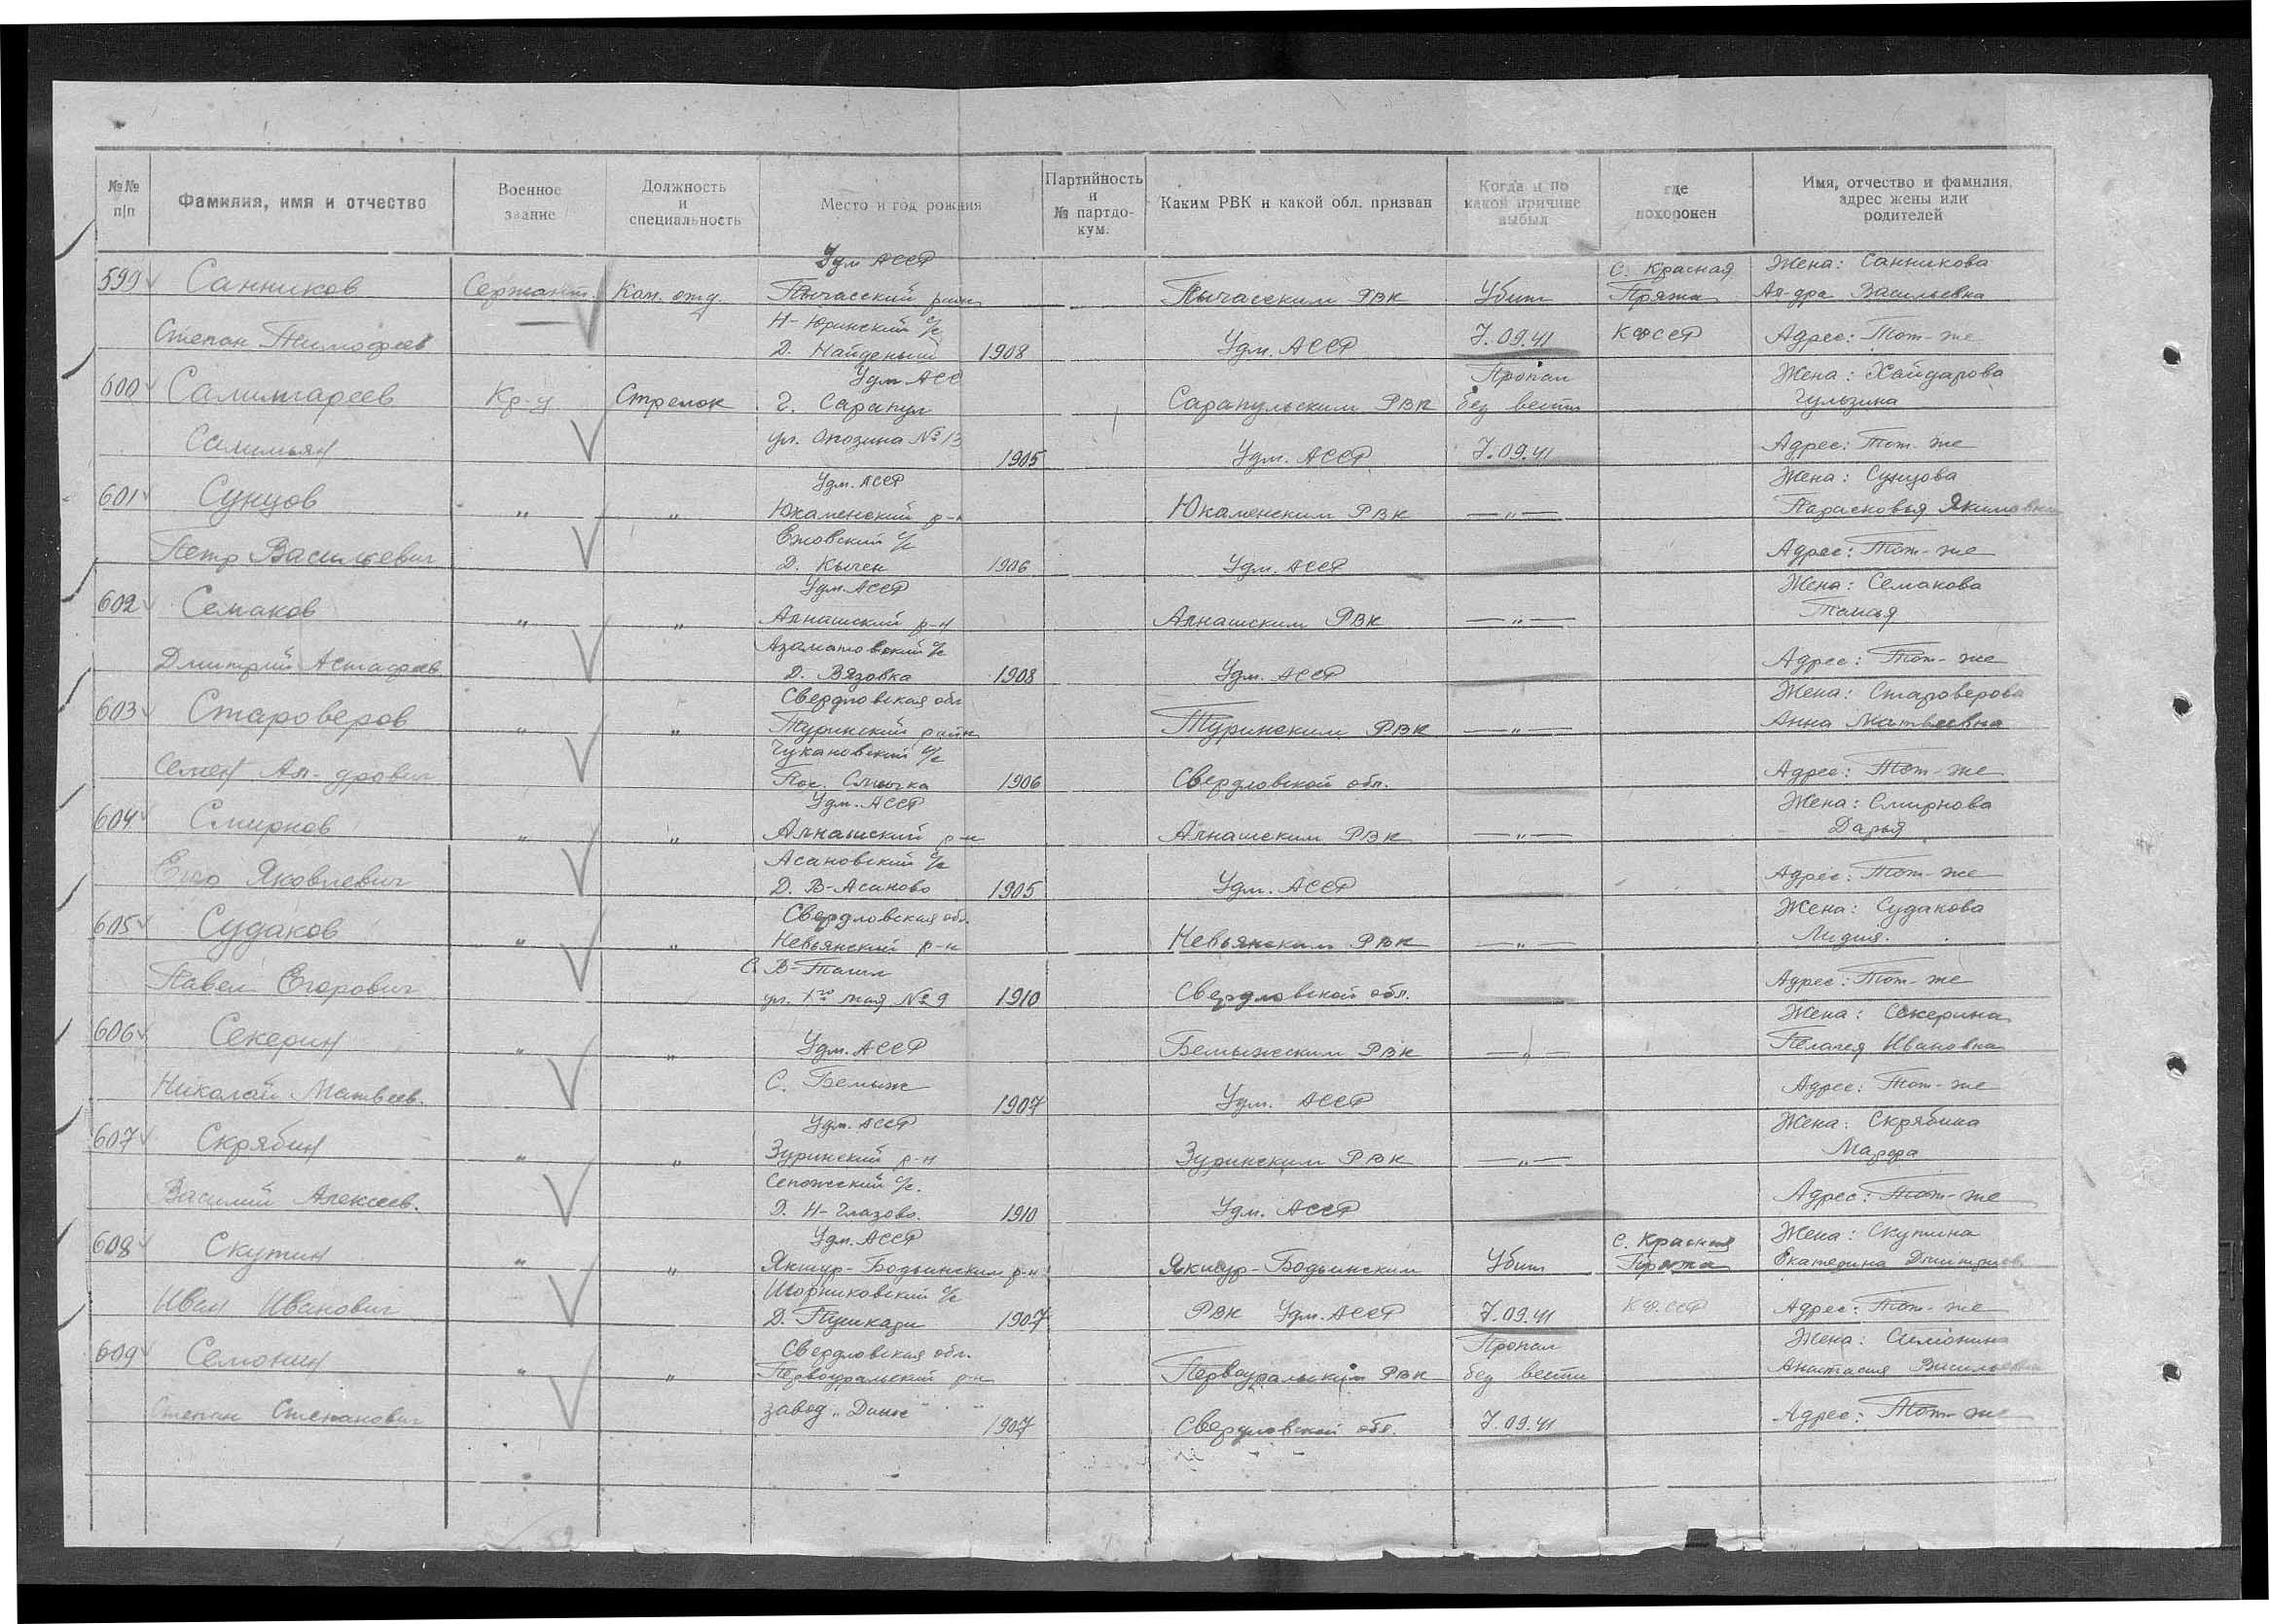 №№ п/п
Фамилия, имя и отчество
Военное звание
Должность и специальность
Место и год рождния
Партийность и № партдокум.
Каким РВК и какой обл. призван
Когда и по какой причине выбыл
где похоронен
Имя, отчество и фамилия, адрес жены или родителей
Удм АССР
С. Красная Жена: Санникова
599 Санников Сержант. Ком. отд. Пычасский район Пычасским РВК Убит Пряжа Ал-дра Васильевна
Н-Юринский с/с
Степан Тимофеев Д. Найденый 1908 Удм. АССР 7.09.41 КФССР Адрес: Тот-же
Удм АСС Пропал Жена: Хайдарова
600 Салимгареев Кр-ц Стрелок г. Сарапул Сарапульским РВК без вести Гульзина
Салимьян ул. №13 1905 Удм. АССР 7.09.41 Адрес: Тот-же
Удм. АССР Жена: Сунцова
601 Сунцов " " Юкаменский р-н Юкаменским РВК —"— Парасковья Якимовна
Ежовский с/с
Петр Васильевич Д. Кычен 1906 Удм. АССР Адрес: Тот-же
Удм. АССР Жена: Семакова
602 Семаков " " Алнашский р-н Алнашским РВК —"—
Азаматовский с/с
Дмитрий Астафьев Д. Вязовка 1908 Удм. АССР Адрес: Тот-же
Свердловская обл Жена: Староверова
603 Староверов " " Туринский район Туринским РВК —"— Анна Матвеевна
Чукановский с/с
Семен Ал-дрович Пос. Смычка 1906 Свердловской обл. Адрес: Тот-же
Удм. АССР Жена: Смирнова
604 Смирнов " " Алнашский р-н Алнашским РВК —"— Дарья
Асановский с/с
Яковлевич Д. В-Асаново 1905 Удм. АССР Адрес: Тот-же
Свердловская обл. Жена: Судакова
605 Судаков " " Невьянский р-н Невьянским РВК —"— Лидия.
С В-Тагил
Павел Егорович ул. 1го мая №9 1910 Свердловской обл. Адрес: Тот-же
Жена: Секерина
606 Секерин " " Удм. АССР Бемыжским РВК —"— Пелагея Ивановна
Николай Матвеев. С. Бемыж 1907 Удм. АССР Адрес: Тот-же
Удм. АССР Жена: Скрябина
607 Скрябин " " Зуринский р-н Зуринским РВК —"— Марфа
Сепожский с/с.
Василий Алексеев. Д. Н-Глазово. 1910 Удм. АССР Адрес: Тот-же
Удм. АССР С. Красная Жена: Скутина
608 Скутин " " Якшур-Бодьинским р-н Якшур-Бодьинским Убит Пряжа Екатерина Дмитриев
с/с
Иван Иванович Д. Пушкари 1907 РВК Удм. АССР 7.09.41 КФ.ССР Адрес: Тот-же
Свердловская обл. Пропал Жена: Симонина
609 Семонин " " Первоуральский р-н Первоуральским РВК без вести Анастасия Васильевна
Степан Степанович завод „Динас" 1907 Свердловской обл. 7.09.41 Адрес: Тот-же